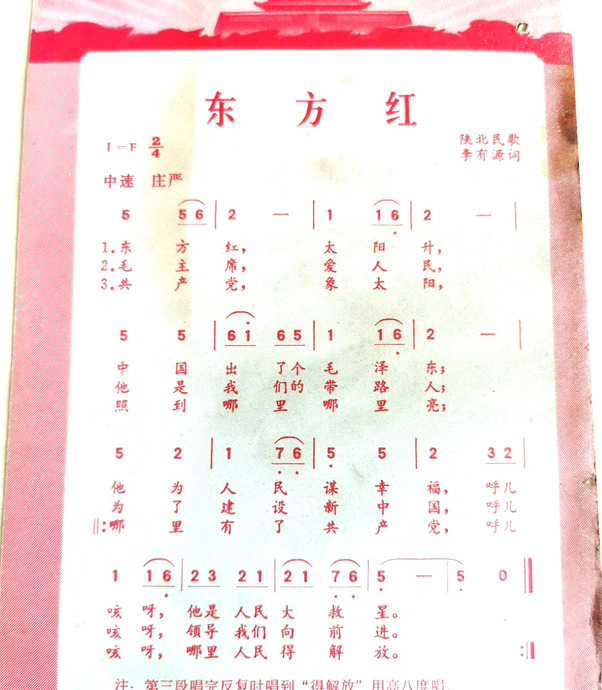 东方红
陕北民歌
1=F 2/4
李有源词
中速 庄严
5 56 | 2 — | 1 16 | 2 — |
1.东方红，太阳升，
2.毛主席，爱人民，
3.共产党，象太阳，
5 5 | 61 65 | 1 16 | 2 — |
中国出了个毛泽东；
他是我们的带路人；
照到哪里哪里亮；
5 2 | 1 76 | 5 5 | 2 32 |
他为人民谋幸福，呼儿
为了建设新中国，呼儿
‖:哪里有了共产党，呼儿
1 16 | 23 21 | 21 76 | 5 — | 5 0 ‖
咳呀，他是人民大救星。
咳呀，领导我们向前进。
咳呀，哪里人民得解放。:‖
注：第三段唱完反复时唱到“得解放”用高八度唱.